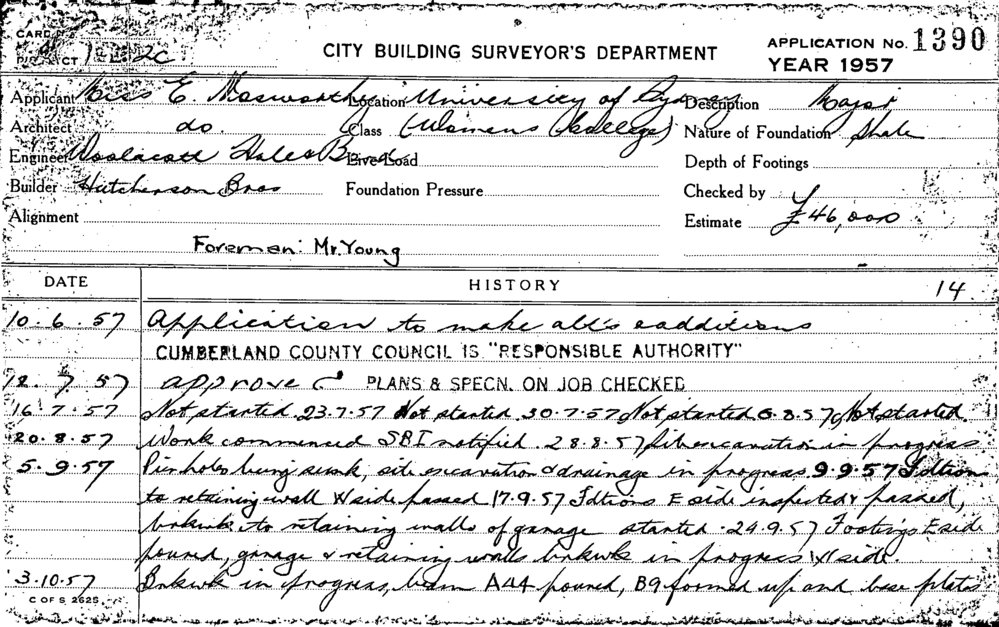 CARD
DISTRICT
CITY BUILDING SURVEYOR'S DEPARTMENT
APPLICATION No. 1390
YEAR 1957
Applicant Miss E Mosworthy Location University of Sydney Description Major
Architect do. Class (Womens College) Nature of Foundation Shale
Engineer Woolacott Hale & Live Load Depth of Footings
Builder Hutcherson Bros Foundation Pressure Checked by
Alignment Estimate £46,000
Foreman: Mr. Young
DATE HISTORY 14
10.6.57 Application to make alt's & additions
CUMBERLAND COUNTY COUNCIL IS "RESPONSIBLE AUTHORITY"
12.7.57 approved PLANS & SPECN. ON JOB CHECKED
16.7.57 Not started 23.7.57 Not started 30.7.57 Not started 6.8.57 Not started
20.8.57 Work commenced SBI notified 28.8.57 site excavation in progress
5.9.57 Pier holes being sunk, site excavation & drainage in progress 9.9.57 Fdtion
to retaining wall W side passed 17.9.57 Fdtions E side inspected & passed,
brkwk to retaining walls of garage started. 24.9.57 Footings E side
poured, garage & retaining walls brkwk in progress W side.
3.10.57 Brkwk in progress, beam A44 poured, B9 formed up and base plate
C OF S 2625